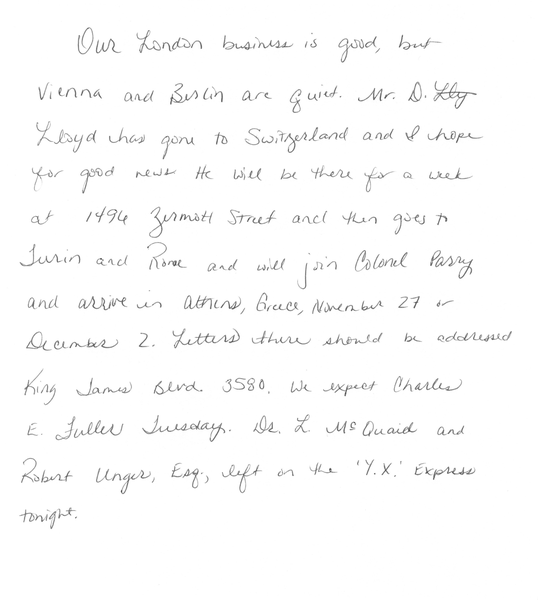 Our London business is good, but
Vienna and Berlin are quiet. Mr. D. Lly
Lloyd has gone to Switzerland and I hope
for good news He will be there for a week
at 1496 Zermott Street and then goes to
Turin and Rome and will join Colonel Parry
and arrive in Athens, Greece, November 27 or
December 2. Letters there should be addressed
King James Blvd. 3580. We expect Charles
E. Fuller Tuesday. Dr. L. McQuaid and
Robert Unger, Esq., left on the 'Y.X.' Express
tonight.